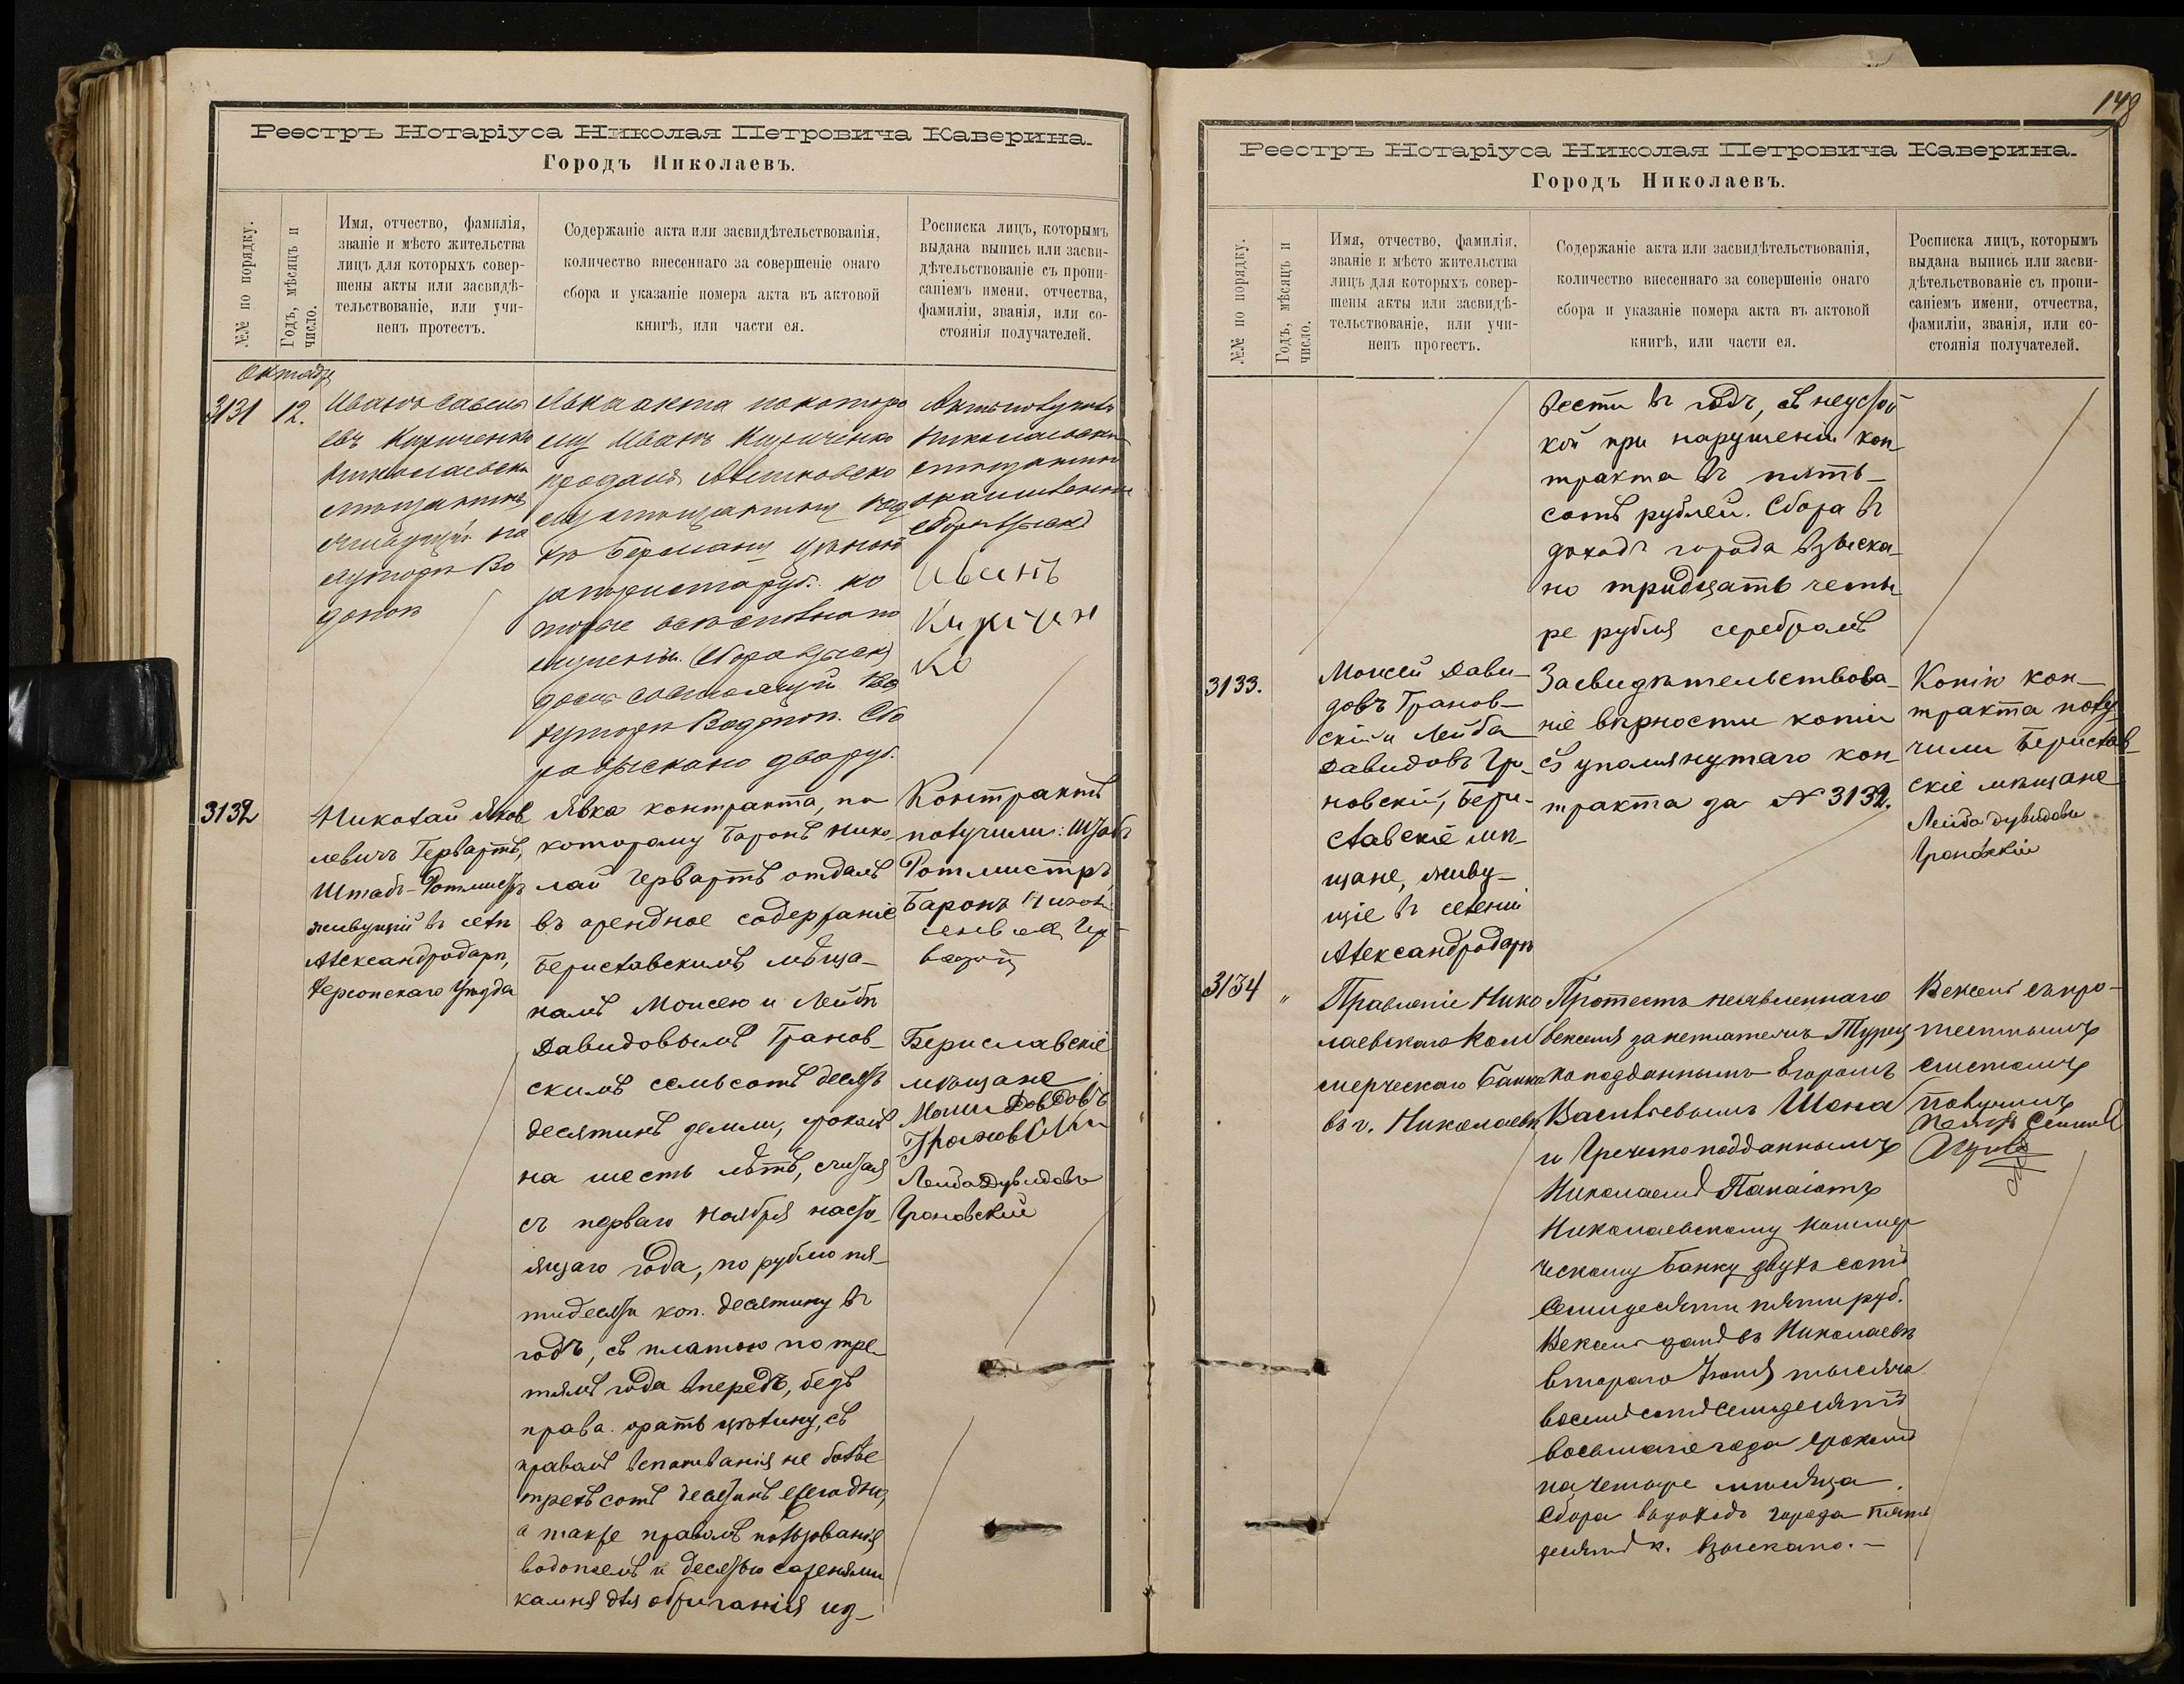 Реестръ Нотаріуса Николая Петровича Каверина.
Городъ Николаевъ.
№№ по порядку.
Годъ, мѣсяцъ и
число.
Имя, отчество, фамилія,
званіе и мѣсто жительства
лицъ для которыхъ совер-
шены акты или засвидѣ-
тельствованіе, или учи-
ненъ протестъ.
Содержаніе акта или засвидѣтельствованія,
количество внесеннаго за совершеніе онаго
сбора и указаніе номера акта въ актовой
книгѣ, или части ея.
Росписка лицъ, которымъ
выдана выпись или засви-
дѣтельствованіе съ пропи-
саніемъ имени, отчества,
фамиліи, званія, или со-
стоянія получателей.
Октября
3131
12.
Иванъ Савель
евъ Кириченко
Николаевскій
мѣщанинъ
живущій на
хуторѣ Во
допоѣ
Явка акта по которо
му Иванъ Кириченко
продалъ
мѣщанину
Берману цѣною
за триста руб. ко
торые
домъ состоящій на
хуторѣ Водопоѣ. Сбо
ра взыскано два руб.
Актъ получилъ
Николаевскій
мѣщанинъ
Иванъ
Киричен
ко
3132
Николай Яков
левичъ Гервартъ,
Штабъ-Ротмистръ
живущій въ селѣ
Александродарѣ,
Херсонскаго Уѣзда
Явка контракта, по
которому Баронъ Нико-
лай Гервартъ отдалъ
въ арендное содержаніе
Бериславскимъ мѣща-
намъ Моисею и Лейбѣ
Давидовымъ Гранов-
скимъ семьсотъ десять
десятинъ земли, срокомъ
на шесть лѣтъ, считая
съ перваго Ноября насто-
ящаго года, по рублю пя-
тидесяти коп. десятину въ
годъ, съ платою по тре-
тямъ года впередъ, безъ
права орать цѣлину, съ
правомъ вспахиванія не болѣе
трехъ сотъ десятинъ ежегодно,
а также правомъ пользованія
водопоемъ и десятью саженями
камня для обжиганія из-
Контрактъ
получили: Штабъ
Ротмистръ,
Баронъ Никол
Гер-
вартъ
Бериславскіе
мѣщане
Давидовъ
Грановскій
Лейба Дувидовъ
Грановскій
148
Реестръ Нотаріуса Николая Петровича Каверина.
Городъ Николаевъ.
№№ по порядку.
Годъ, мѣсяцъ и
число.
Имя, отчество, фамилія,
званіе и мѣсто жительства
лицъ для которыхъ совер-
шены акты или засвидѣ-
тельствованіе, или учи-
ненъ протестъ.
Содержаніе акта или засвидѣтельствованія,
количество внесеннаго за совершеніе онаго
сбора и указаніе номера акта въ актовой
книгѣ, или части ея.
Росписка лицъ, которымъ
выдана выпись или засви-
дѣтельствованіе съ пропи-
саніемъ имени, отчества,
фамиліи, званія, или со-
стоянія получателей.
вести въ годъ, съ неустой
кой при нарушеніи кон-
тракта въ пять-
сотъ рублей. Сбора въ
доходъ города взыска-
но тридцать четы-
ре рубля серебромъ
3133.
Моисей Дави-
довъ Гранов-
скій и Лейба
Давидовъ Гра-
новскій, Бери-
славскіе мѣ-
щане, живу-
щіе въ селеніи
Александродарѣ
Засвидѣтельствова-
ніе вѣрности копіи
съ упомянутаго кон-
тракта за № 3132.
Копію кон-
тракта полу-
чили Берислав-
скіе мѣщане
Лейба Дувидовъ
Грановскій
3134
"
Правленіе Нико
лаевскаго Ком
мерческаго Банка
въ г. Николаевѣ
Протестъ неявленнаго
векселя за неплатежъ Турец
ко подданнымъ Егоромъ
Васильевымъ Шона
и Греческоподданнымъ
Николаемъ Панаіотъ
Николаевскому Коммер
ческому Банку двухъ сотъ
семидесяти пяти руб.
Вексель данъ въ Николаевѣ
втораго Іюня тысяча
восемьсотъ семьдесятъ
восьмаго года срокомъ
на четыре мѣсяца.
Сбора въ доходъ города пять
десятъ к. взыскано.-
Вексель съ про-
тестомъ
получилъ
Петръ